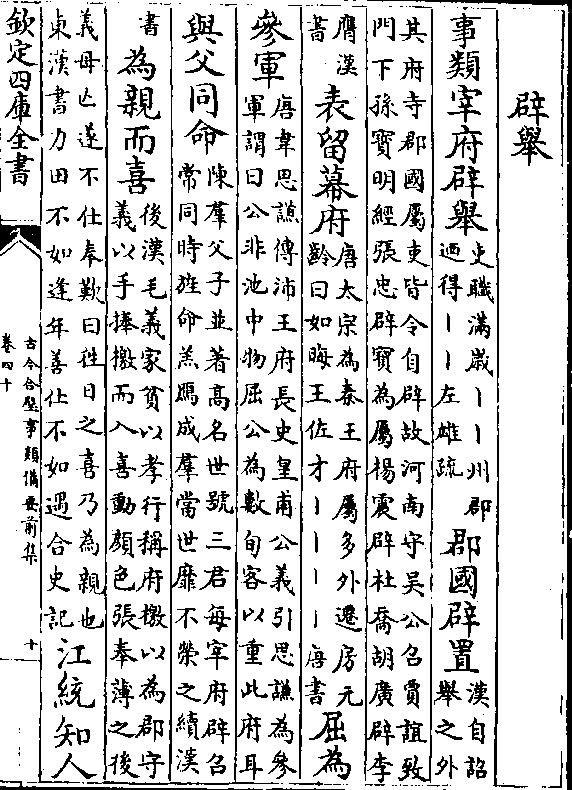 辟舉
事類宰府辟舉吏職滿歲丨丨州郡迺得丨丨左雄疏郡國辟置漢自詔舉之外
其府寺郡國屬吏皆令自辟故河南守吳公召賈誼致門下孫寶明經張忠辟寶為屬楊震辟杜喬胡廣辟李
膺漢書表留幕府唐太宗為秦王府屬多外遷房元齡曰如晦王佐才丨丨丨丨唐書屈為
參軍唐韋思謙傳沛王府長史皇甫公義引思謙為參軍謂曰公非池中物屈公為數旬客以重此府耳
與父同命陳羣父子並著高名世號三君每宰府辟召常同時旌命羔鴈成羣當世靡不榮之續漢
書為親而喜後漢毛義家貧以孝行稱府檄以為郡守義以手捧檄而入喜動顔色張奉薄之後
義母亡遂不仕奉歎曰往日之喜乃為親也東漢書力田不如逢年善仕不如遇合史記江統知人
欽定四庫全書
古今合璧事類備要前集
卷四十
十